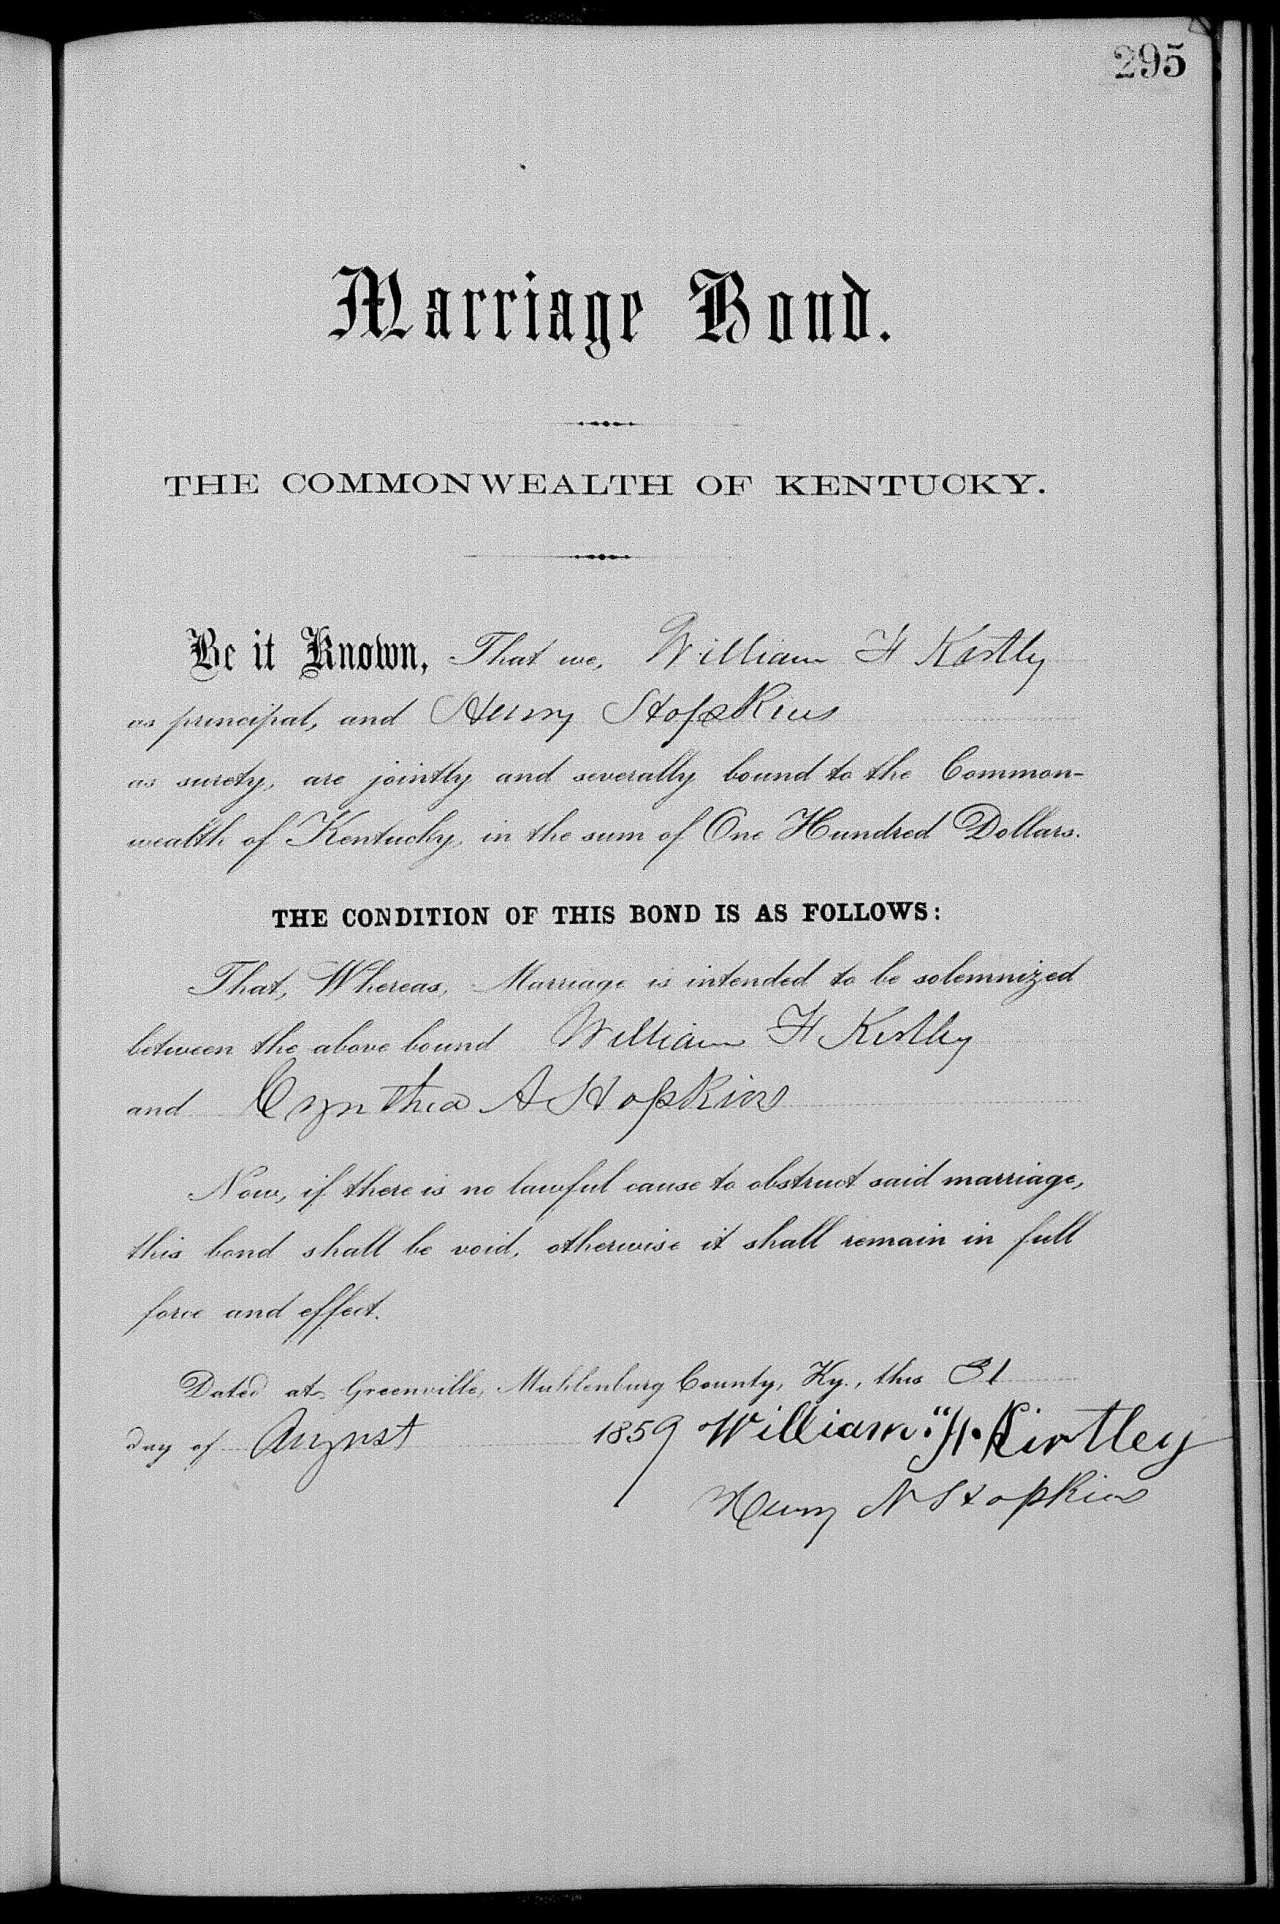 295
Marriage Bond.
THE COMMONWEALTH OF KENTUCKY.
Be it Known, That we, William H Kirtly
as principal, and Henry Hopkins
as surety, are jointly and severally bound to the Common-
wealth of Kentucky, in the sum of One Hundred Dollars.
THE CONDITION OF THIS BOND IS AS FOLLOWS:
That, Whereas, Marriage is intended to be solemnized
between the above bound William H Kirtley
and Cynthia A Hopkins
Now, if there is no lawful cause to obstruct said marriage,
this bond shall be void, otherwise it shall remain in full
force and effect.
Dated at Greenville, Muhlenburg County, Ky., this 31
day of August 1859 William. "H. Kirtley
Henry N Hopkins